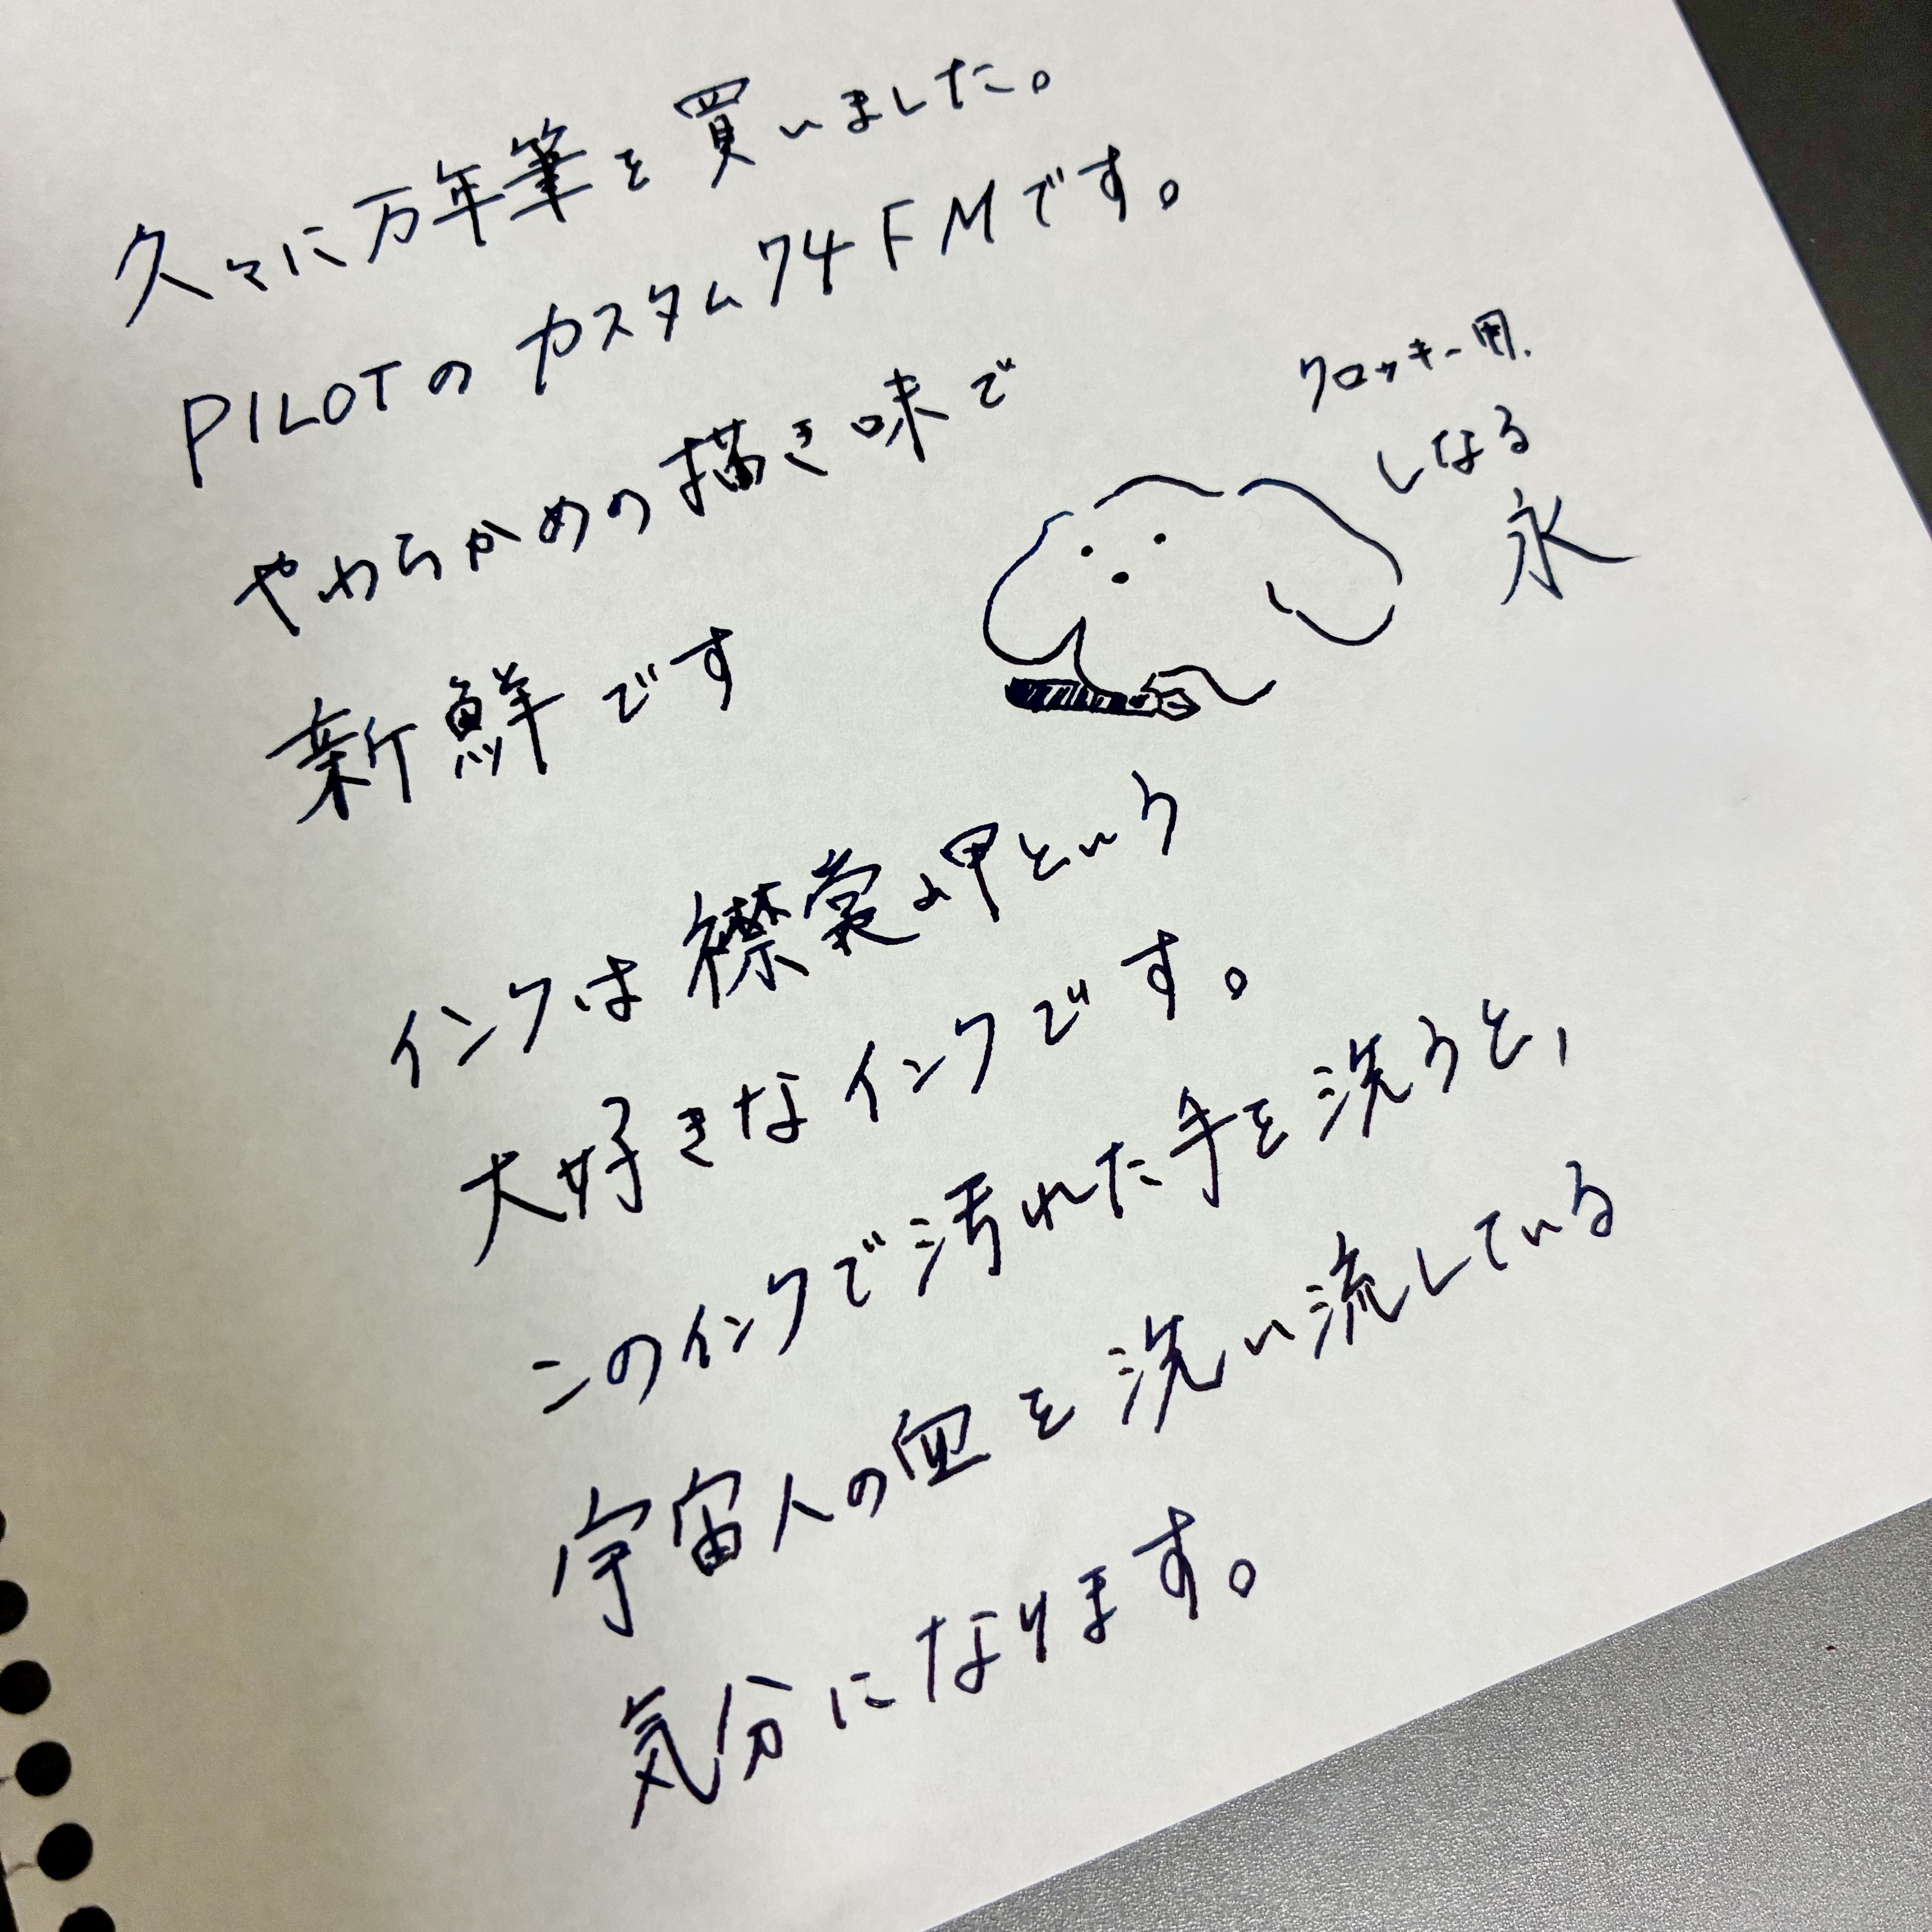 久々に万年筆を買いました。
PILOTのカスタム74FMです。
やわらかめの描き味で
新鮮です
クロッキー用.
しなる
永
インクは襟裳岬という
大好きなインクです。
このインクで汚れた手を洗うと,
宇宙人の血を洗い流している
気分になります。